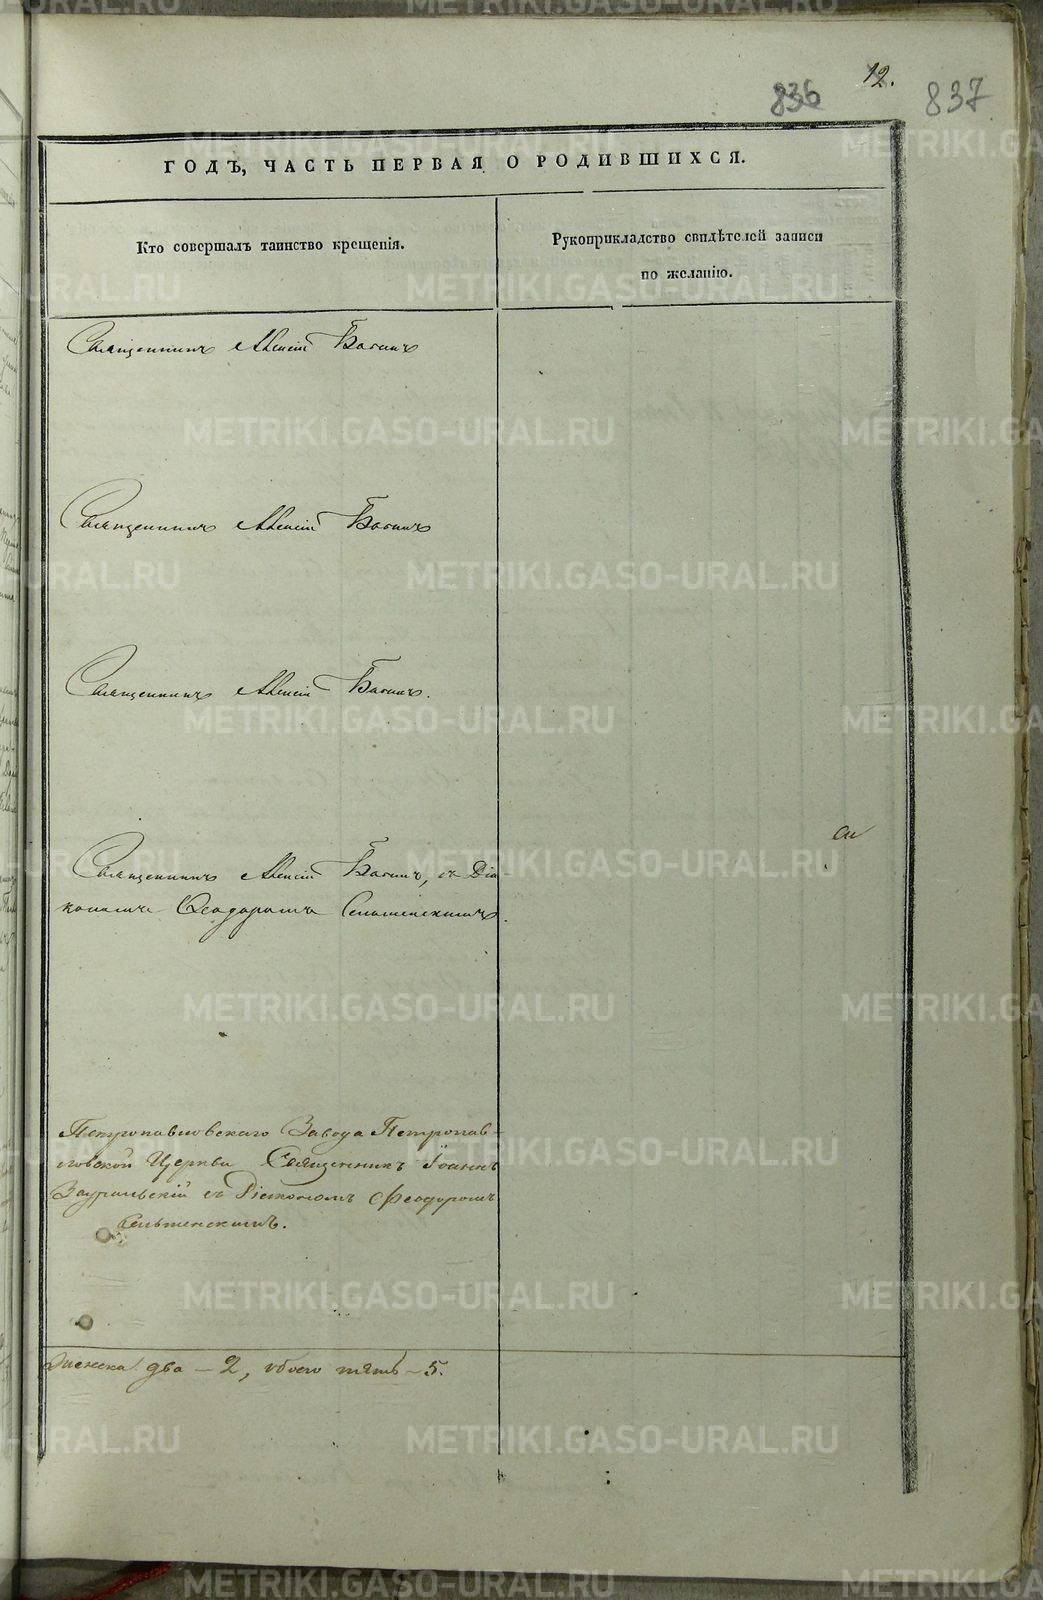 12.
836 837
ГОДЪ, ЧАСТЬ ПЕРВАЯ О РОДИВШИХСЯ.
Кто совершалъ таинство крещенія.
Рукоприкладство свидѣтелей записи
по желанію.
Священникъ Алексій
Священникъ Алексій
Священникъ Алексій
Священникъ Алексій съ Діа-
кономъ Ѳеодоромъ
Петропавловскаго Завода Петропав-
ловской Церкви Священникъ Іоаннъ
Зауральскій съ Діакономъ Феодоромъ
женска два – 2, обоего пять – 5.
METRIKI.GASO-URAL.RU